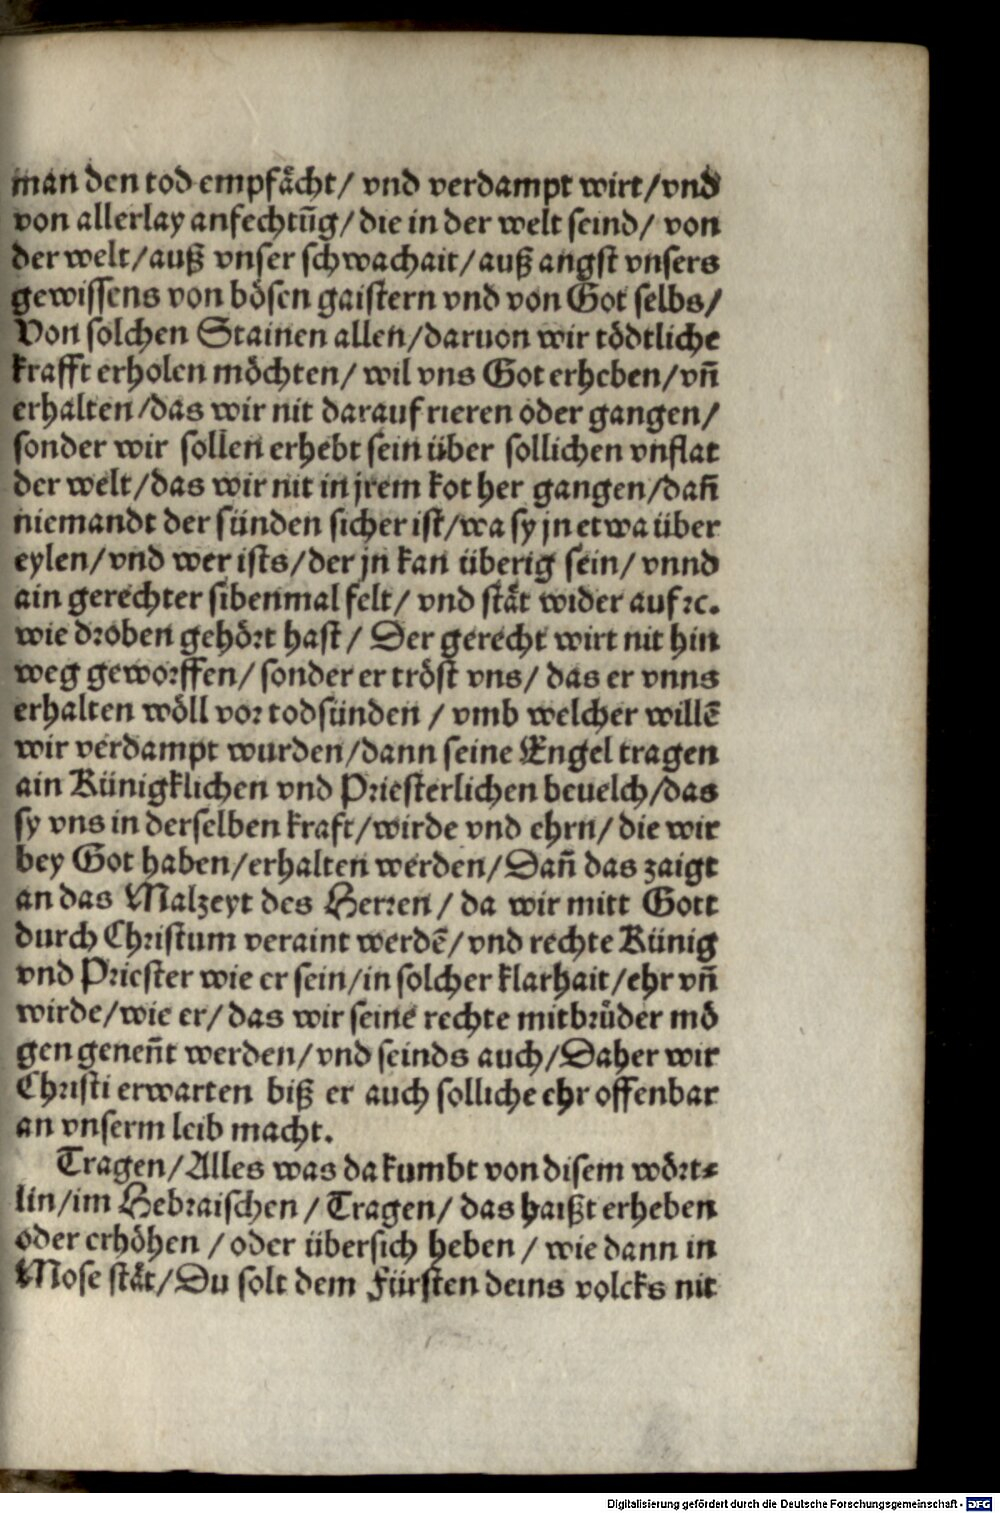 man den tod empfächt/ vnd verdampt wirt/vnd
von allerlay anfechtūg/ die in der welt seind/ von
der welt/auß vnser schwachait/auß angst vnsers
gewissens von bösen gaistern vnd von Got selbs/
Von solchen Stainen allen/daruon wir tödtliche
krafft erholen möchten/ wil vns Got erheben/vn̄
erhalten/das wir nit darauf rieren oder gangen/
sonder wir sollen erhebt sein über sollichen vnflat
der welt/das wir nit in jrem kot her gangen/dan̄
niemandt der sünden sicher ist/wa sy jn etwa über
eylen/vnd wer ists/der jn kan überig sein/ vnnd
ain gerechter sibenmal felt/ vnd stät wider auf ꝛc.
wie droben gehört hast/ Der gerecht wirt nit hin
weg geworffen/ sonder er tröst vns/ das er vnns
erhalten wöll vor todsünden / vmb welcher willē
wir verdampt wurden/dann seine Engel tragen
ain Künigklichen vnd Priesterlichen beuelch/das
sy vns in derselben kraft/wirde vnd ehrn/ die wir
bey Got haben/erhalten werden/Dan̄ das zaigt
an das Malzeyt des Herren/ da wir mitt Gott
durch Christum veraint werdē/ vnd rechte Künig
vnd Priester wie er sein/in solcher klarhait/ehr vn̄
wirde/wie er/ das wir seine rechte mitbrůder mö
gen genen̄t werden/vnd seinds auch/Daher wir
Christi erwarten biß er auch solliche ehr offenbar
an vnserm leib macht.
Tragen/Alles was da kumbt von disem wört⸗
lin/im Hebraischen / Tragen/ das haißt erheben
oder erhöhen / oder übersich heben / wie dann in
Mose stät/Du solt dem Fürsten deins volcks nit
Digitalisierung gefördert durch die Deutsche Forschungsgemeinschaft - DFG